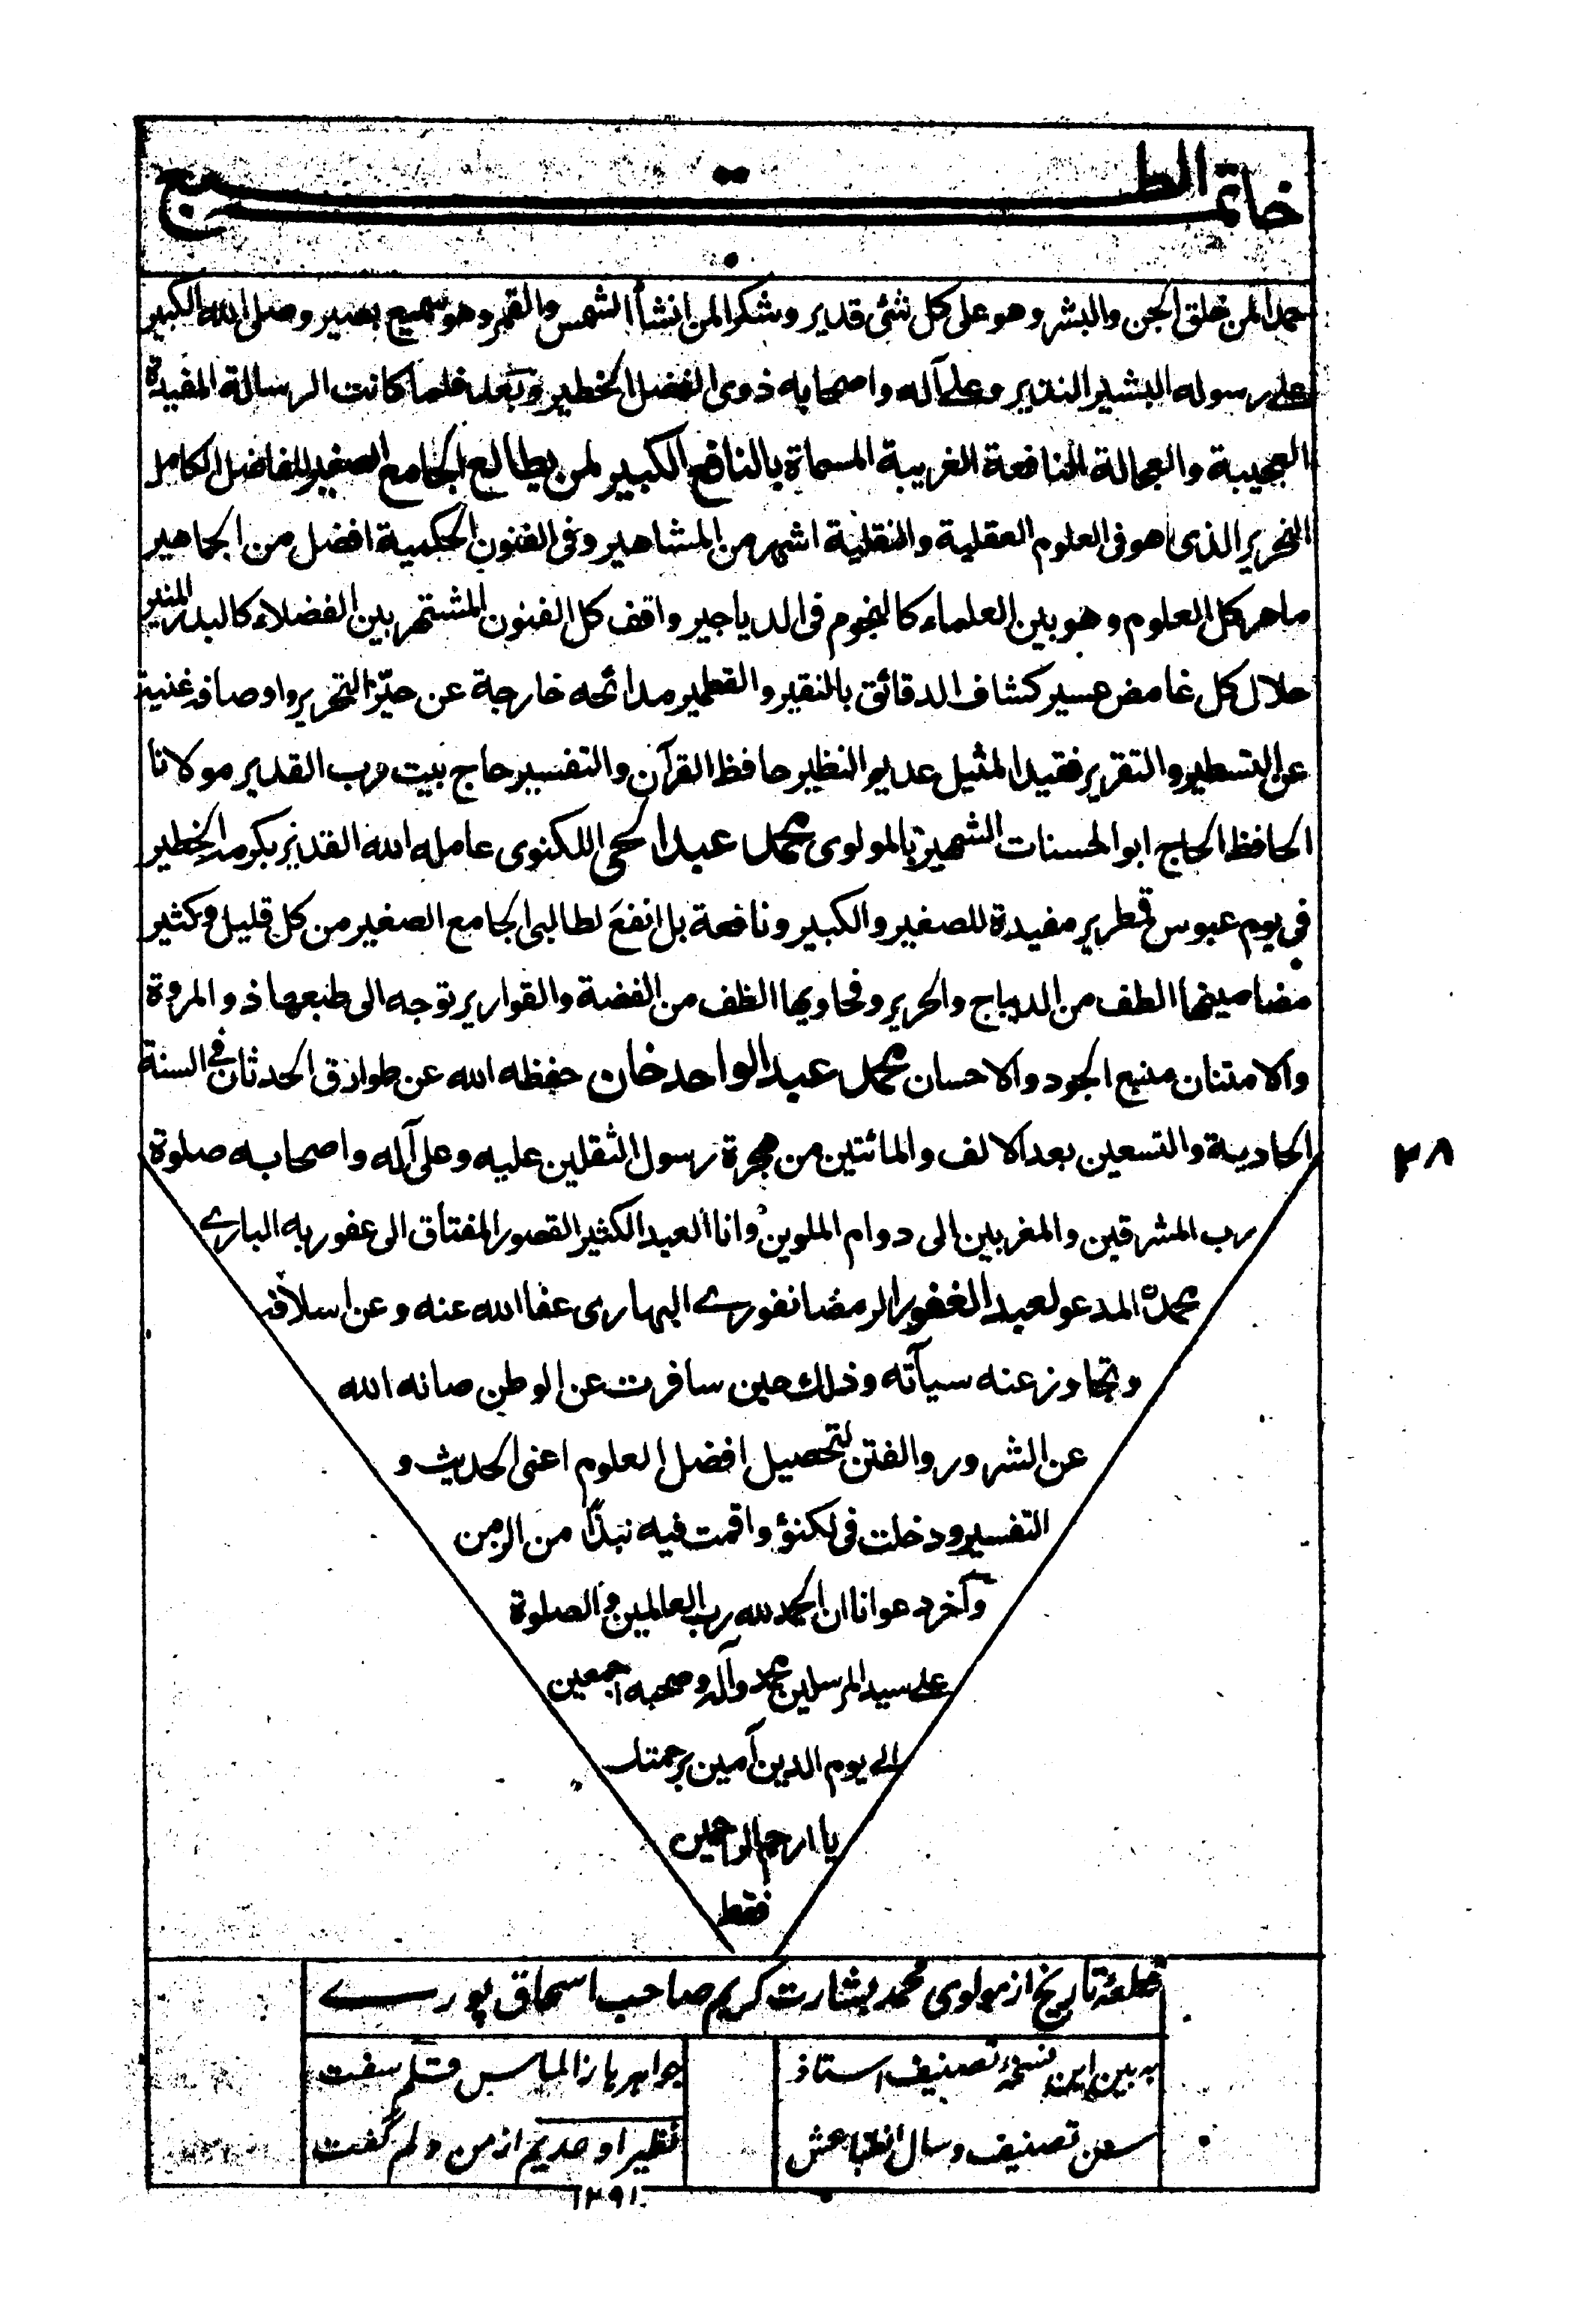 خاتمة الطبع
حمدا لمن خلق الجن والبشر وهو على كل شئ قدير وشكرا لمن انشأ الشمس والقمر وهو سميع بصير وصلى الله الكبير
على رسوله البشير النذير وعلى آله واصحابه ذوى الفضل الخطير وبعد فلما كانت الرسالة المفيدة
العجيبة والعجالة النافعة الغريبة المسماة بالنافع الكبير لمن يطالع الجامع الصغير للفاضل الكامل
النحرير الذى هو فى العلوم العقلية والنقلية اشهر من المشاهير وفى الفنون الحكمية افضل من الجماهير
ماهر كل العلوم وهو بين العلماء كالنجوم فى الدياجير واقف كل الفنون المشتهر بين الفضلاء كالبدر المنير
حلال كل غامض عسير كشاف الدقائق بالنقير والقطمير مدائحه خارجة عن حيّز التحرير واوصافه غنية
عن التسطير والتقرير فقيد المثيل عديم النظير حافظ القرآن والتفسير حاج بيت رب القدير مولانا
الحافظ الحاج ابو الحسنات الشهير بالمولوى محمد عبد الحى اللكنوى عامله الله القدير بكرمه الخطير
فى يوم عبوس قمطرير مفيدة للصغير والكبير ونافعة بل انفعَ لطالبى الجامع الصغير من كل قليل وكثير
مضامينها الطف من الديباج والحرير وفحاويها الظف من الفضة والقوارير توجه الى طبعها ذو المروة
والامتنان منبع الجود والاحسان محمد عبد الواحد خان حفظه الله عن طوارق الحدثان فى السنة
الحادية والتسعين بعد الالف والمائتين من هجرة رسول الثقلين عليه وعلى آله واصحابه صلوة
رب المشرقين والمغربين الى دوام الملوين وانا العبد الكثير القصور المفتاق الى عفو ربه البارے
محمد المدعو لعبد الغفور الرمضانفورے البهارى عفا الله عنه وعن اسلافه
وتجاوز عنه سيآته وذلك حين سافرت عن الوطن صانه الله
عن الشرور والفتن لتحصيل افضل العلوم اعنى الحديث و
التفسير ودخلت فى لكنؤ واقمت فيه نبذًا من الزمن
وآخر دعوانا ان الحمد لله رب العالمين والصلوة
على سيد المرسلين محمد وآله وصحبه اجمعين
الے يوم الدين آمين برحمتك
يا ارحم الراحمين
فقط
٣٨
قطعۂ تاریخ از مولوی محمد بشارت کریم صاحب اسحاق پورے
به بین این نسخۂ تصنیف استاذ
جواهرها ز الماس قلم سفت
سن تصنیف وسال انطباعش
نظیر او عدیم از من دلم گفت
١٢٩١